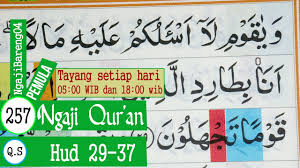 NgajiBareng04
PEMULA
وَيٰقَوْمِ لَآ اَسْـَٔلُكُمْ عَلَيْهِ مَالًا
Tayang setiap hari
05:00 WIB dan 18:00 wib
اَنَا۠ بِطَارِدِ الَّذِيْنَ
257 Ngaji Qur'an
قَوْمًا تَجْهَلُوْنَ
Q.S Hud 29-37